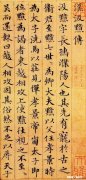 漢汲黯傳
汲黯字長孺濮陽人也其先有寵於古之
衛君至黯七世世為卿大夫黯以父任孝景時
為太子洗馬以莊見憚孝景帝崩太子即
位黯為謁者東越相攻上使黯往視之不至
至吳而還報曰越人相攻固其俗然不足以辱天子